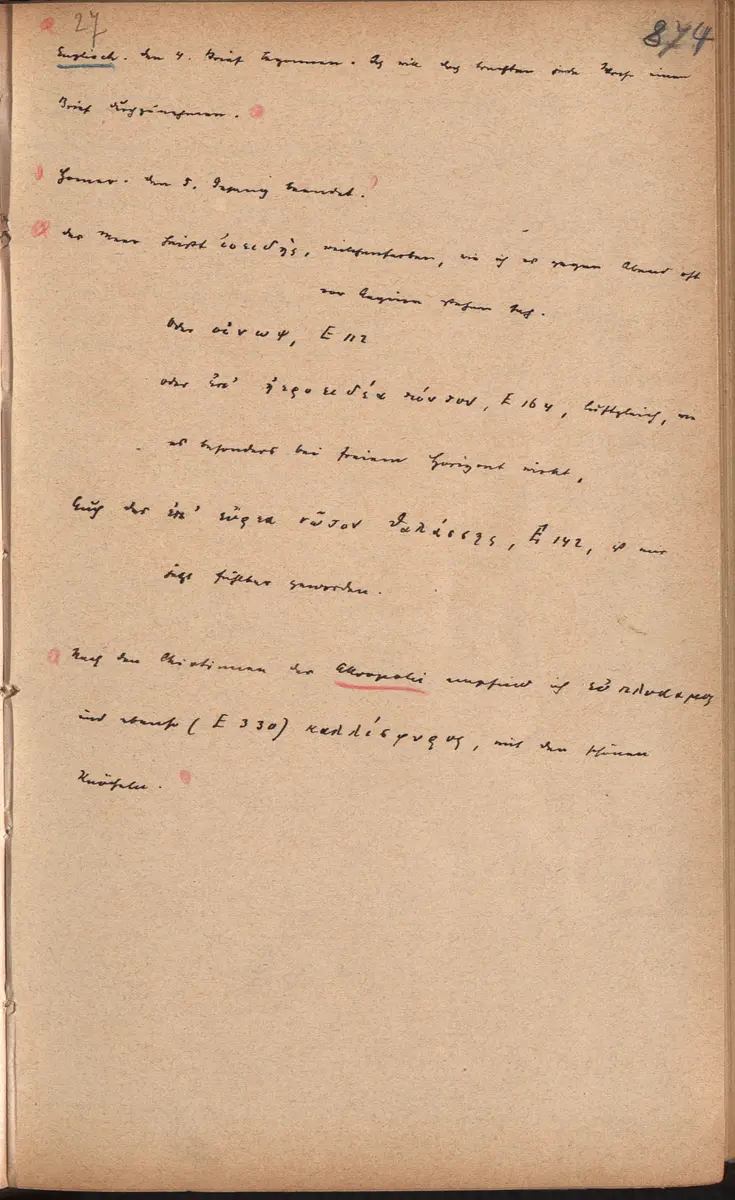 27
874
Englisch. Den 4. Brief begonnen. Ich will doch trachten jede Woche einen
Brief durchzunehmen.
Homer. Den 5. Gesang beendet.
Das Meer heißt ἰοειδής, veilchenfarben, wie ich es gegen Abend oft
vor Aegina stehen sah.
Oder οἶνωψ, E 112
oder ἐπ' ἠεροειδέα πόντον, E 164, luftgleich, wie
es besonders bei freiem Horizont wirkt,
Auch das ἐπ' εὐρέα νῶτον θαλάσσης, E 142, ist mir
jetzt fühlbar geworden.
Nach den Christinnen der Akropolis empfind ich εὐπλόκαμος
und ebenso (E 330) καλλίσφυρος, mit den schönen
Knöcheln.